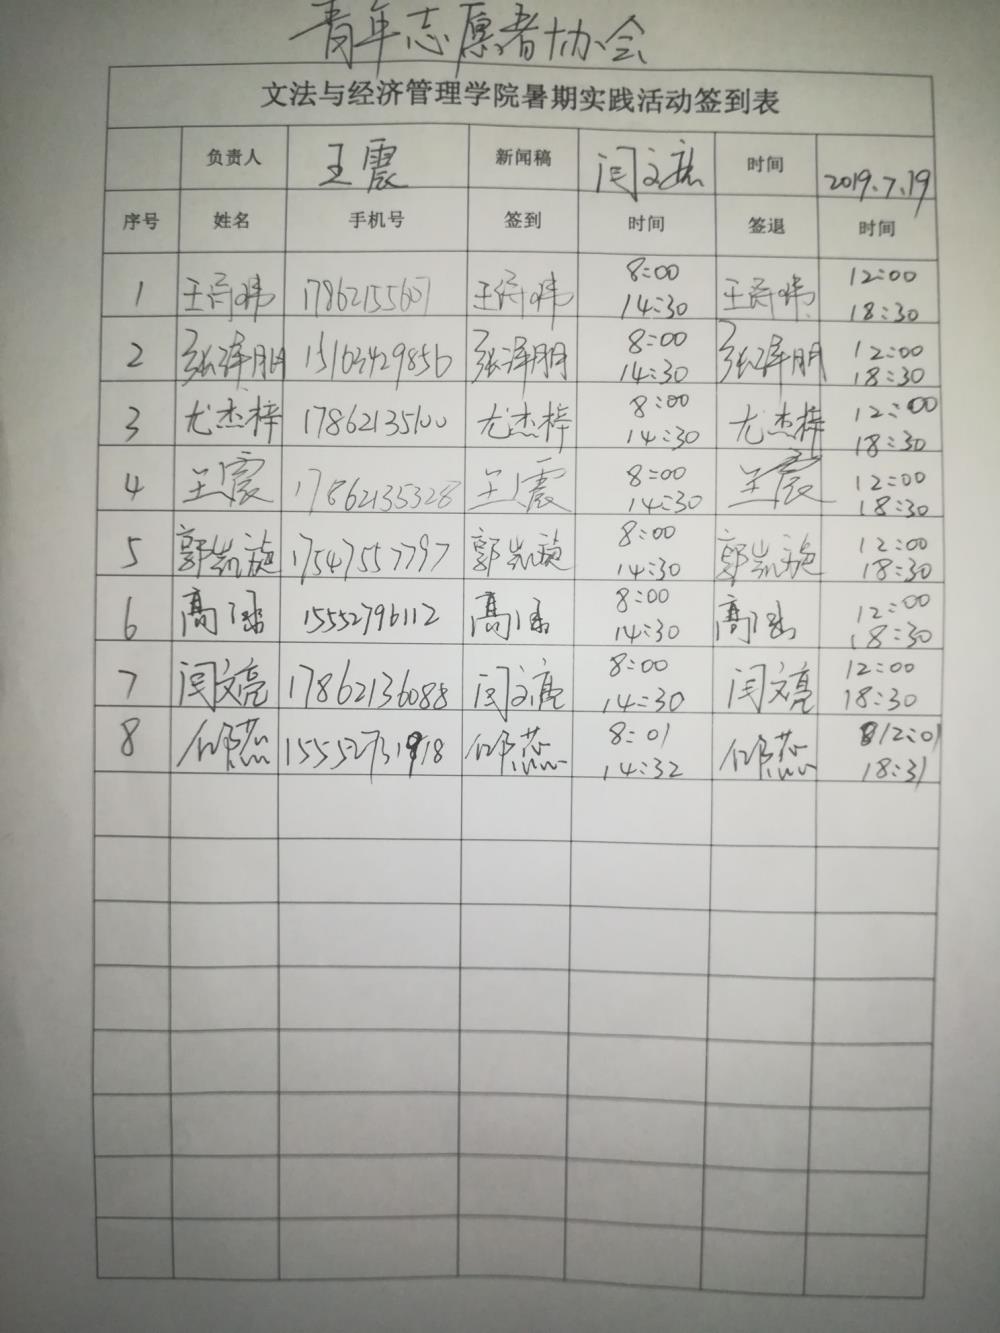 青年志愿者协会
文法与经济管理学院暑期实践活动签到表
负责人 王震 新闻稿 闫文亮 时间 2019.7.19
序号 姓名 手机号 签到 时间 签退 时间
1 王 17862155607 王 8:00 14:30 王 12:00 18:30
2 张泽朋 15163429856 张泽朋 8:00 14:30 张泽朋 12:00 18:30
3 尤杰梓 17862135100 尤杰梓 8:00 14:30 尤杰梓 12:00 18:30
4 王震 17862135328 王震 8:00 14:30 王震 12:00 18:30
5 郭凯旋 17547557797 郭凯旋 8:00 14:30 郭凯旋 12:00 18:30
6 高 15552796112 高 8:00 14:30 高 12:00 18:30
7 闫文亮 17862136088 闫文亮 8:00 14:30 闫文亮 12:00 18:30
8 15552731918 8:01 14:32 12:01 18:31